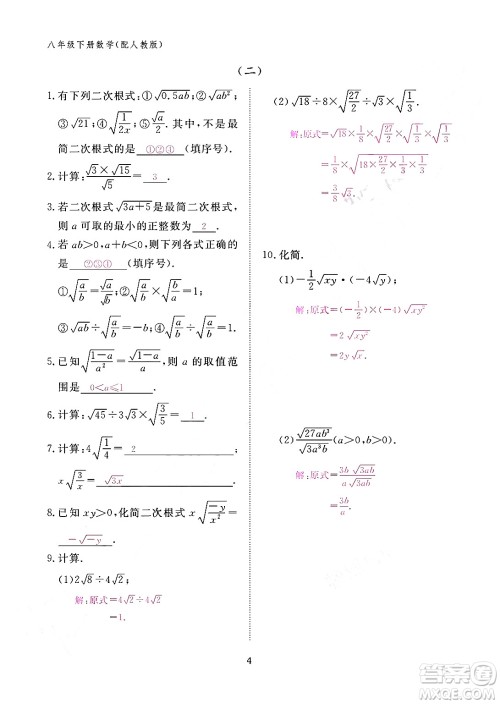 八年级下册数学(配人教版)
(二)
1. 有下列二次根式:①√0.5ab;②√(a/5);
③√21;④√(1/(2x));⑤√(a²+b²).其中,不是最
简二次根式的是 ①②④ (填序号).
2. 计算:(√3×√15)/√5= 3 .
3. 若二次根式√(3a+5)是最简二次根式,
则a可取的最小的正整数为 2 .
4. 若ab>0,a+b<0,则下列各式正确的
是 ②③① (填序号).
①√(a/b)=√a/√b;②√(a/b)×√(b/a)=1;
③√ab÷√(a/b)=-b.
5. 已知√((1-a)/a²)=√(1-a)/a,则a的取值范
围是 0<a≤1 .
6. 计算:√45÷3√3×√(3/5)= 1 .
7. 计算:4√(1/4)= 2 ,
x√(3/x)= √3x .
8. 已知xy>0,化简二次根式x√(-y/x²)=
-√-y .
9. 计算.
(1)2√8÷4√2;
解:原式=4√2÷4√2
=1.
(2)√18÷8×√(27/2)×√(1/3).
解:原式=√18×1/8×√(27/2)×√(1/3)
=1/8×√(18×27/2×1/3)
10. 化简.
(1)-1/2√xy·(-4√y);
=2√xy²
=2y√x.
(2)√27ab³/√3a³b(a>0,b>0).
解:原式=3b√3ab/a√3ab
=3b/a.
4